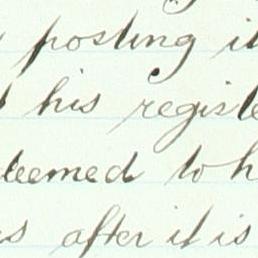 posting it
his registe
deemed to h
after it is